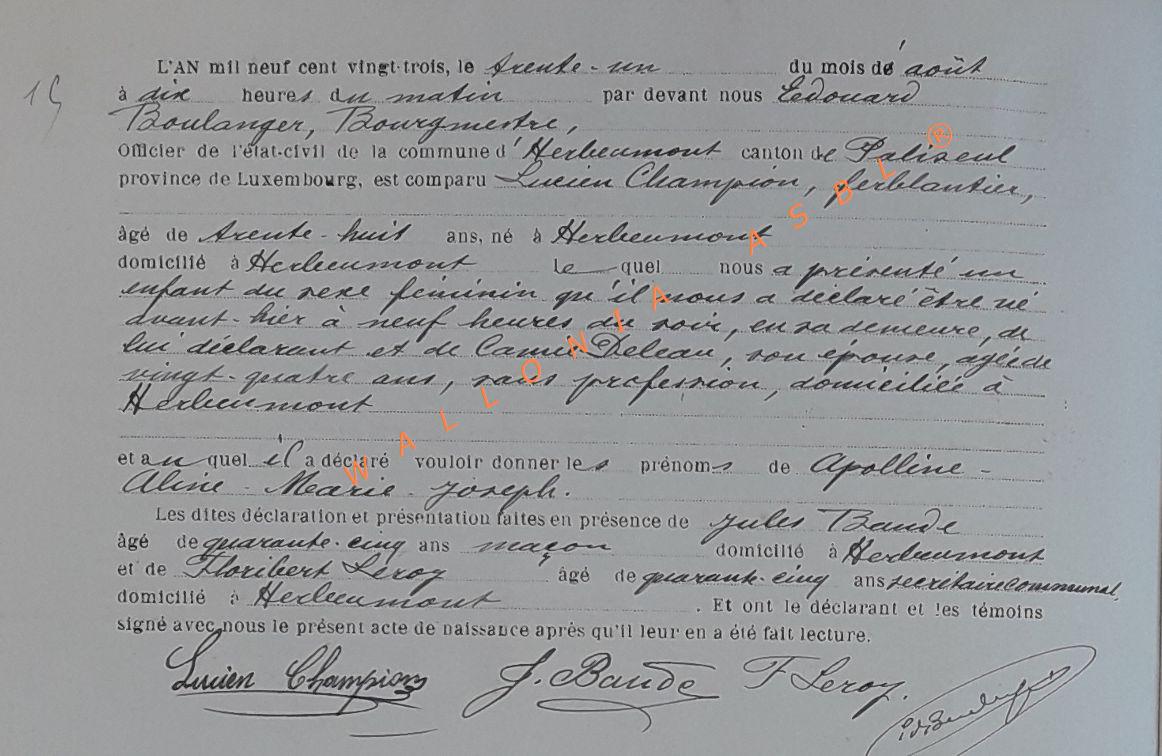 15
L'AN mil neuf cent vingt-trois, le trente-un du mois de août
à dix heures du matin par devant nous Edouard
Boulanger, Bourgmestre,
Officier de l'état-civil de la commune d'Herbeumont canton de Paliseul
province de Luxembourg, est comparu Lucien Champion, ferblantier,
âgé de trente-huit ans, né à Herbeumont
domicilié à Herbeumont le quel nous a présenté un
enfant du sexe féminin qu'il nous a déclaré être né
avant-hier à neuf heures du soir, en sa demeure, de
lui déclarant et de Camie Deleau, son épouse, agée de
vingt-quatre ans, sans profession, domiciliée à
Herbeumont
et au quel il a déclaré vouloir donner les prénoms de Apolline-
Aline-Marie-Joseph.
Les dites déclaration et présentation faites en présence de Jules Baude
âgé de quarante-cinq ans maçon domicilié à Herbeumont
et de Floribert Leroy âgé de quarante-cinq ans secrétaire communal,
domicilié à Herbeumont. Et ont le déclarant et les témoins
signé avec nous le présent acte de naissance après qu'il leur en a été fait lecture.
Lucien Champion J. Baude F Leroy.
WALLONIA ASBL ®